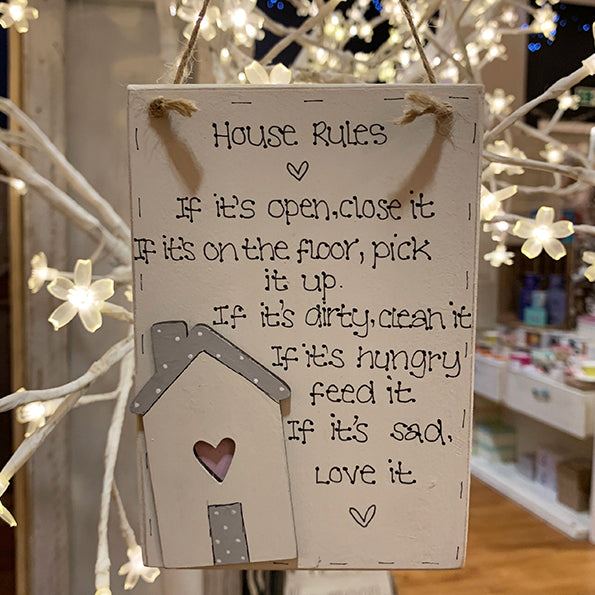 House Rules
If it's open,close it
If it's on the floor, pick
it up.
If it's dirty,clean it
If it's hungry
feed it
If it's sad,
Love it